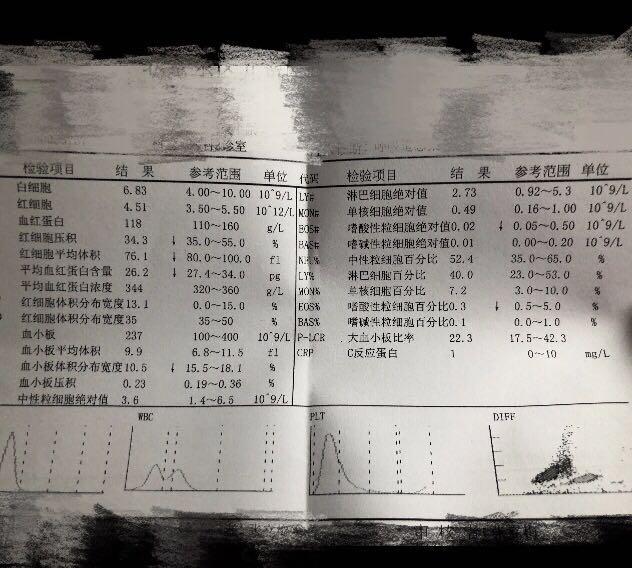 诊室
检验项目 结 果 参考范围 单位 代码 检验项目 结 果 参考范围 单位
白细胞 6.83 4.00~10.00 10^9/L LY# 淋巴细胞绝对值 2.73 0.92~5.3 10^9/L
红细胞 4.51 3.50~5.50 10^12/L MON# 单核细胞绝对值 0.49 0.16~1.00 10^9/L
血红蛋白 118 110~160 g/L EOS# 嗜酸性粒细胞绝对值0.02 ↓ 0.05~0.50 10^9/L
红细胞压积 34.3 ↓ 35.0~55.0 % BAS# 嗜碱性粒细胞绝对值0.01 0.00~0.20 10^9/L
红细胞平均体积 76.1 ↓ 80.0~100.0 fl NEU% 中性粒细胞百分比 52.4 35.0~65.0 %
平均血红蛋白含量 26.2 ↓ 27.4~34.0 pg LY% 淋巴细胞百分比 40.0 23.0~53.0 %
平均血红蛋白浓度 344 320~360 g/L MON% 单核细胞百分比 7.2 3.0~10.0 %
红细胞体积分布宽度13.1 0.0~15.0 % EOS% 嗜酸性粒细胞百分比0.3 ↓ 0.5~5.0 %
红细胞体积分布宽度35 35~50 % BAS% 嗜碱性粒细胞百分比0.1 0.0~1.0 %
血小板 237 100~400 10^9/L P-LCR 大血小板比率 22.3 17.5~42.3 %
血小板平均体积 9.9 6.8~11.5 fl CRP C反应蛋白 1 0~10 mg/L
血小板体积分布宽度10.5 ↓ 15.5~18.1 %
血小板压积 0.23 0.19~0.36 %
中性粒细胞绝对值 3.6 1.4~6.5 10^9/L
WBC PLT DIFF